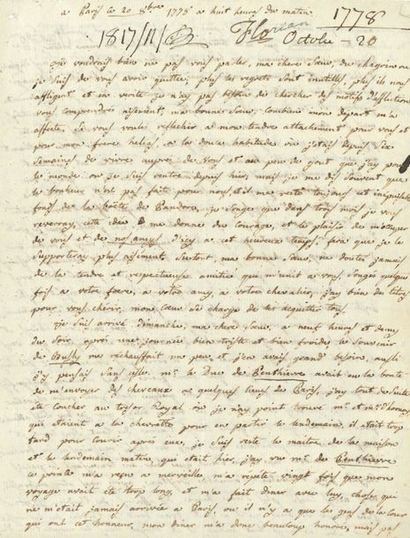 a Paris ce 20 8bre 1778 a huit heures du matin
1778
1817/11/
Florian
Octobre - 20
je voudrois bien ne pas vous parler, ma chere Sœur, du chagrin que
je suis de vous avoir quittée, plus les regrets sont inutiles, plus ils nous
affligent et en verité je n'ay pas besoin de chercher des motifs d'affliction
vous comprendrés aisement, ma bonne Sœur, combien mon depart m'a
affecté, si vous voulés reflechir a mon tendre attachement pour vous et
pour mon frere helas, a la douce habitude ou j'etais depuis six
semaines de vivre aupres de vous et au peu de gout que j'ay pour
le monde ou je suis rentré depuis hier, mais je me dis souvent que
le bonheur n'est pas fait pour nous et il me reste toujours cet inepuisable
fonds de la boëtte de Pandore, je songe que dans tous mois je vous
reverray, cette idée me donne du courage, et le plaisir de m'occuper
de vous et de nos anes d'icy a cet heureux temps, fera que je le
supporteray plus aisement surtout, ma bonne Sœur, ne doutés jamais
de la tendre et respectueuse amitié qui m'unit a vous, songés quelque
fois a votre frere, a votre amy, a votre chevalier, j'ay bien des titres
pour vous cherir, mon cœur se charge de les acquitter tous.
je suis arrivé dimanche, ma chere Sœur, a neuf heures et demy
du soir, apres une journée bien triste et bien froide, le souvenir
de Bussy me rechauffait un peu, et j'en avais grand besoin, aussi
j'y pensais sans cesse. mr le Duc de Penthievre avait eu la bonté
de m'envoyer des chevaux a quelques lieues de Paris, j'ay tout de suite
été coucher au tresor Royal ou je n'ay point trouvé mr et me d'
qui etaient a la chevrette pour en partir le lendemain, il etait trop
tard pour courir apres eux, je suis resté le maitre de la maison
et le lendemain matin, qui etait hier, j'ay vu mr de Penthievre
ce prince m'a reçu a merveilles, m'a repeté vingt fois que mon
voyage avait été trop long, et m'a fait diner avec luy, chose qui
ne m'etait jamais arrivée a Paris, ou il n'y a que les gens de la cour
qui ont cet honneur, mon diner m'a donc beaucoup honoré, mais pas